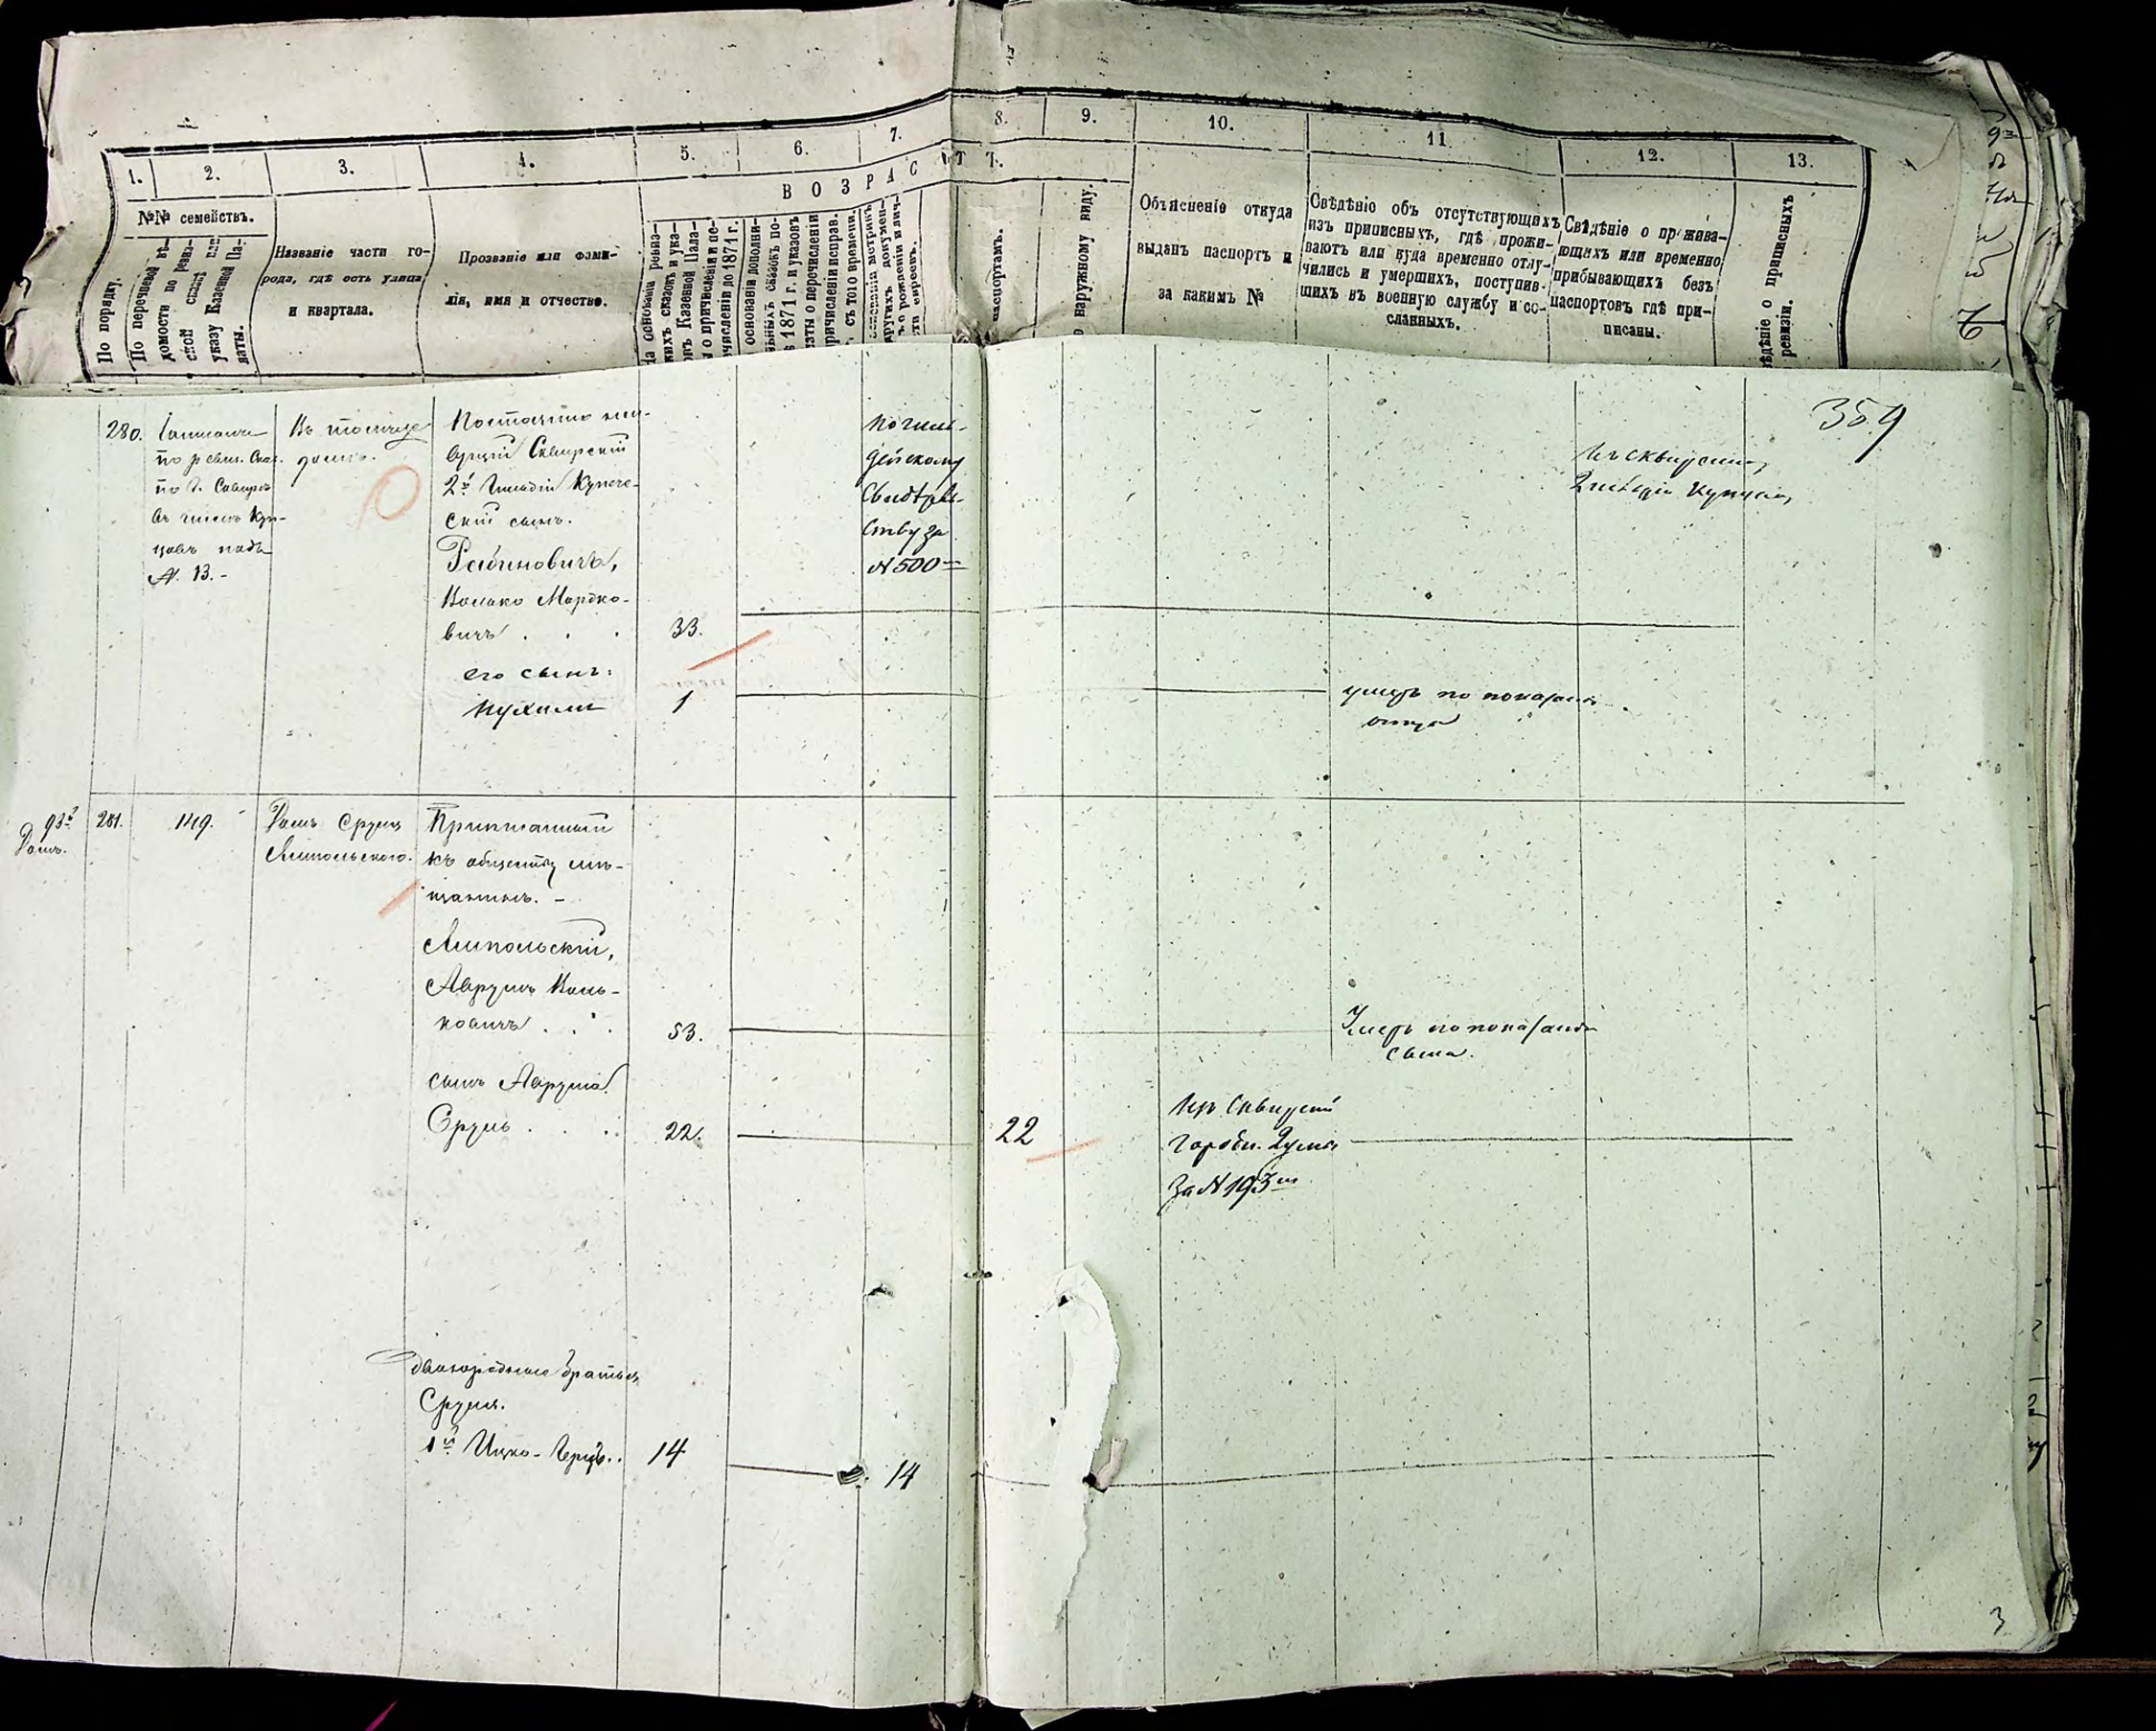 1.
2.
3.
4.
5.
6.
7.
8.
9.
10.
11.
12.
13.
В О З Р А С Т Ъ.
№№ семействъ.
По порядку.
По перечневой вѣ-
домости по ревиз-
ской сказкѣ или
указу Казенной Па-
латы.
Названіе части го-
рода, гдѣ есть улица
и квартала.
Прозваніе или фами-
лія, имя и отчество.
На основаніи ревиз-
скихъ сказокъ и ука-
зовъ Казенной Пала-
ты о причисленіи и пе-
речисленіи до 1871 г.
основаніи дополни-
тельныхъ сказокъ по-
1871 г. и указовъ
Палаты о перечисленіи
причисленіи исправ.
съ того времени.
основаніи метрикъ
другихъ докумен-
товъ о рожденіи и лич-
ности евреевъ.
паспортамъ.
По наружному виду.
Объясненіе откуда
выданъ паспортъ и
за какимъ №
Свѣдѣніе объ отсутствующихъ
изъ приписныхъ, гдѣ прожи-
ваютъ или куда временно отлу-
чились и умершихъ, поступив-
шихъ въ военную службу и со-
сланныхъ.
Свѣдѣніе о прожива-
ющихъ или временно
прибывающихъ безъ
паспортовъ гдѣ при-
писаны.
Свѣдѣніе о приписныхъ
ревизіи.
359
280.
по ревиз. Сказ.
по г. Сквирѣ
въ числѣ Куп-
цовъ подъ
№ 13.-
Въ
домѣ.
Постоянно жи-
вущій Сквирскій
2й Гильдіи Купече-
скій сынъ.
Рабиновичъ,
Волько Мордко-
вичъ . . .
33.
его сынъ:
Нухимъ
1
По гиль-
дейскому
Свидѣтель-
ству за
№ 500
2 гильдіи Купцы
умеръ по показанію
отца
93й
Домъ.
281.
149.
Домъ Сруля
Липольского.
Приписанный
къ обществу мѣ-
щанинъ. -
Липольскій,
Аврумъ Воль-
ковичъ . . .
53.
Умеръ по показанію
сына.
сынъ Аврума
Сруль . . .
22.
22
Изъ Сквирской
Городск. Думы
За № 193
двоюродные братья
Сруля.
1й Ицко-Герцъ. .
14
14
3